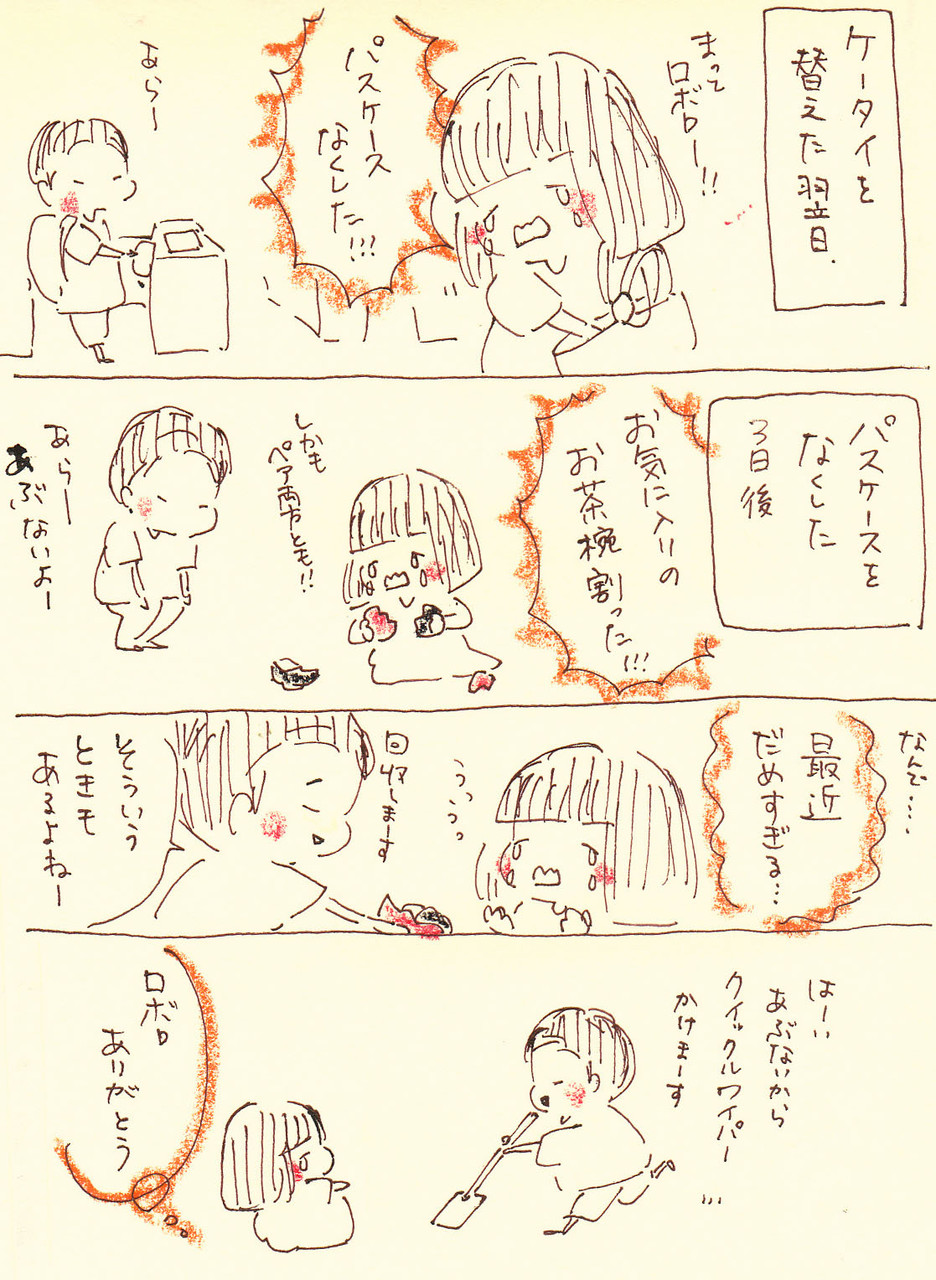 ケータイを
替えた翌日.
まって
ロボロー!!
パスケース
なくした!!!
あらー
パスケースを
なくした
3日後
お気に入りの
お茶椀割った!!!
しかも
ペア両方とも!!
あらー
あぶないよー
なんで……
最近
だめすぎる…
うっうっ
回収しまーす
そういう
ときも
あるよねー
はーい
あぶないから
クイックルワイパー
かけまーす
…
ロボロ
ありがとう